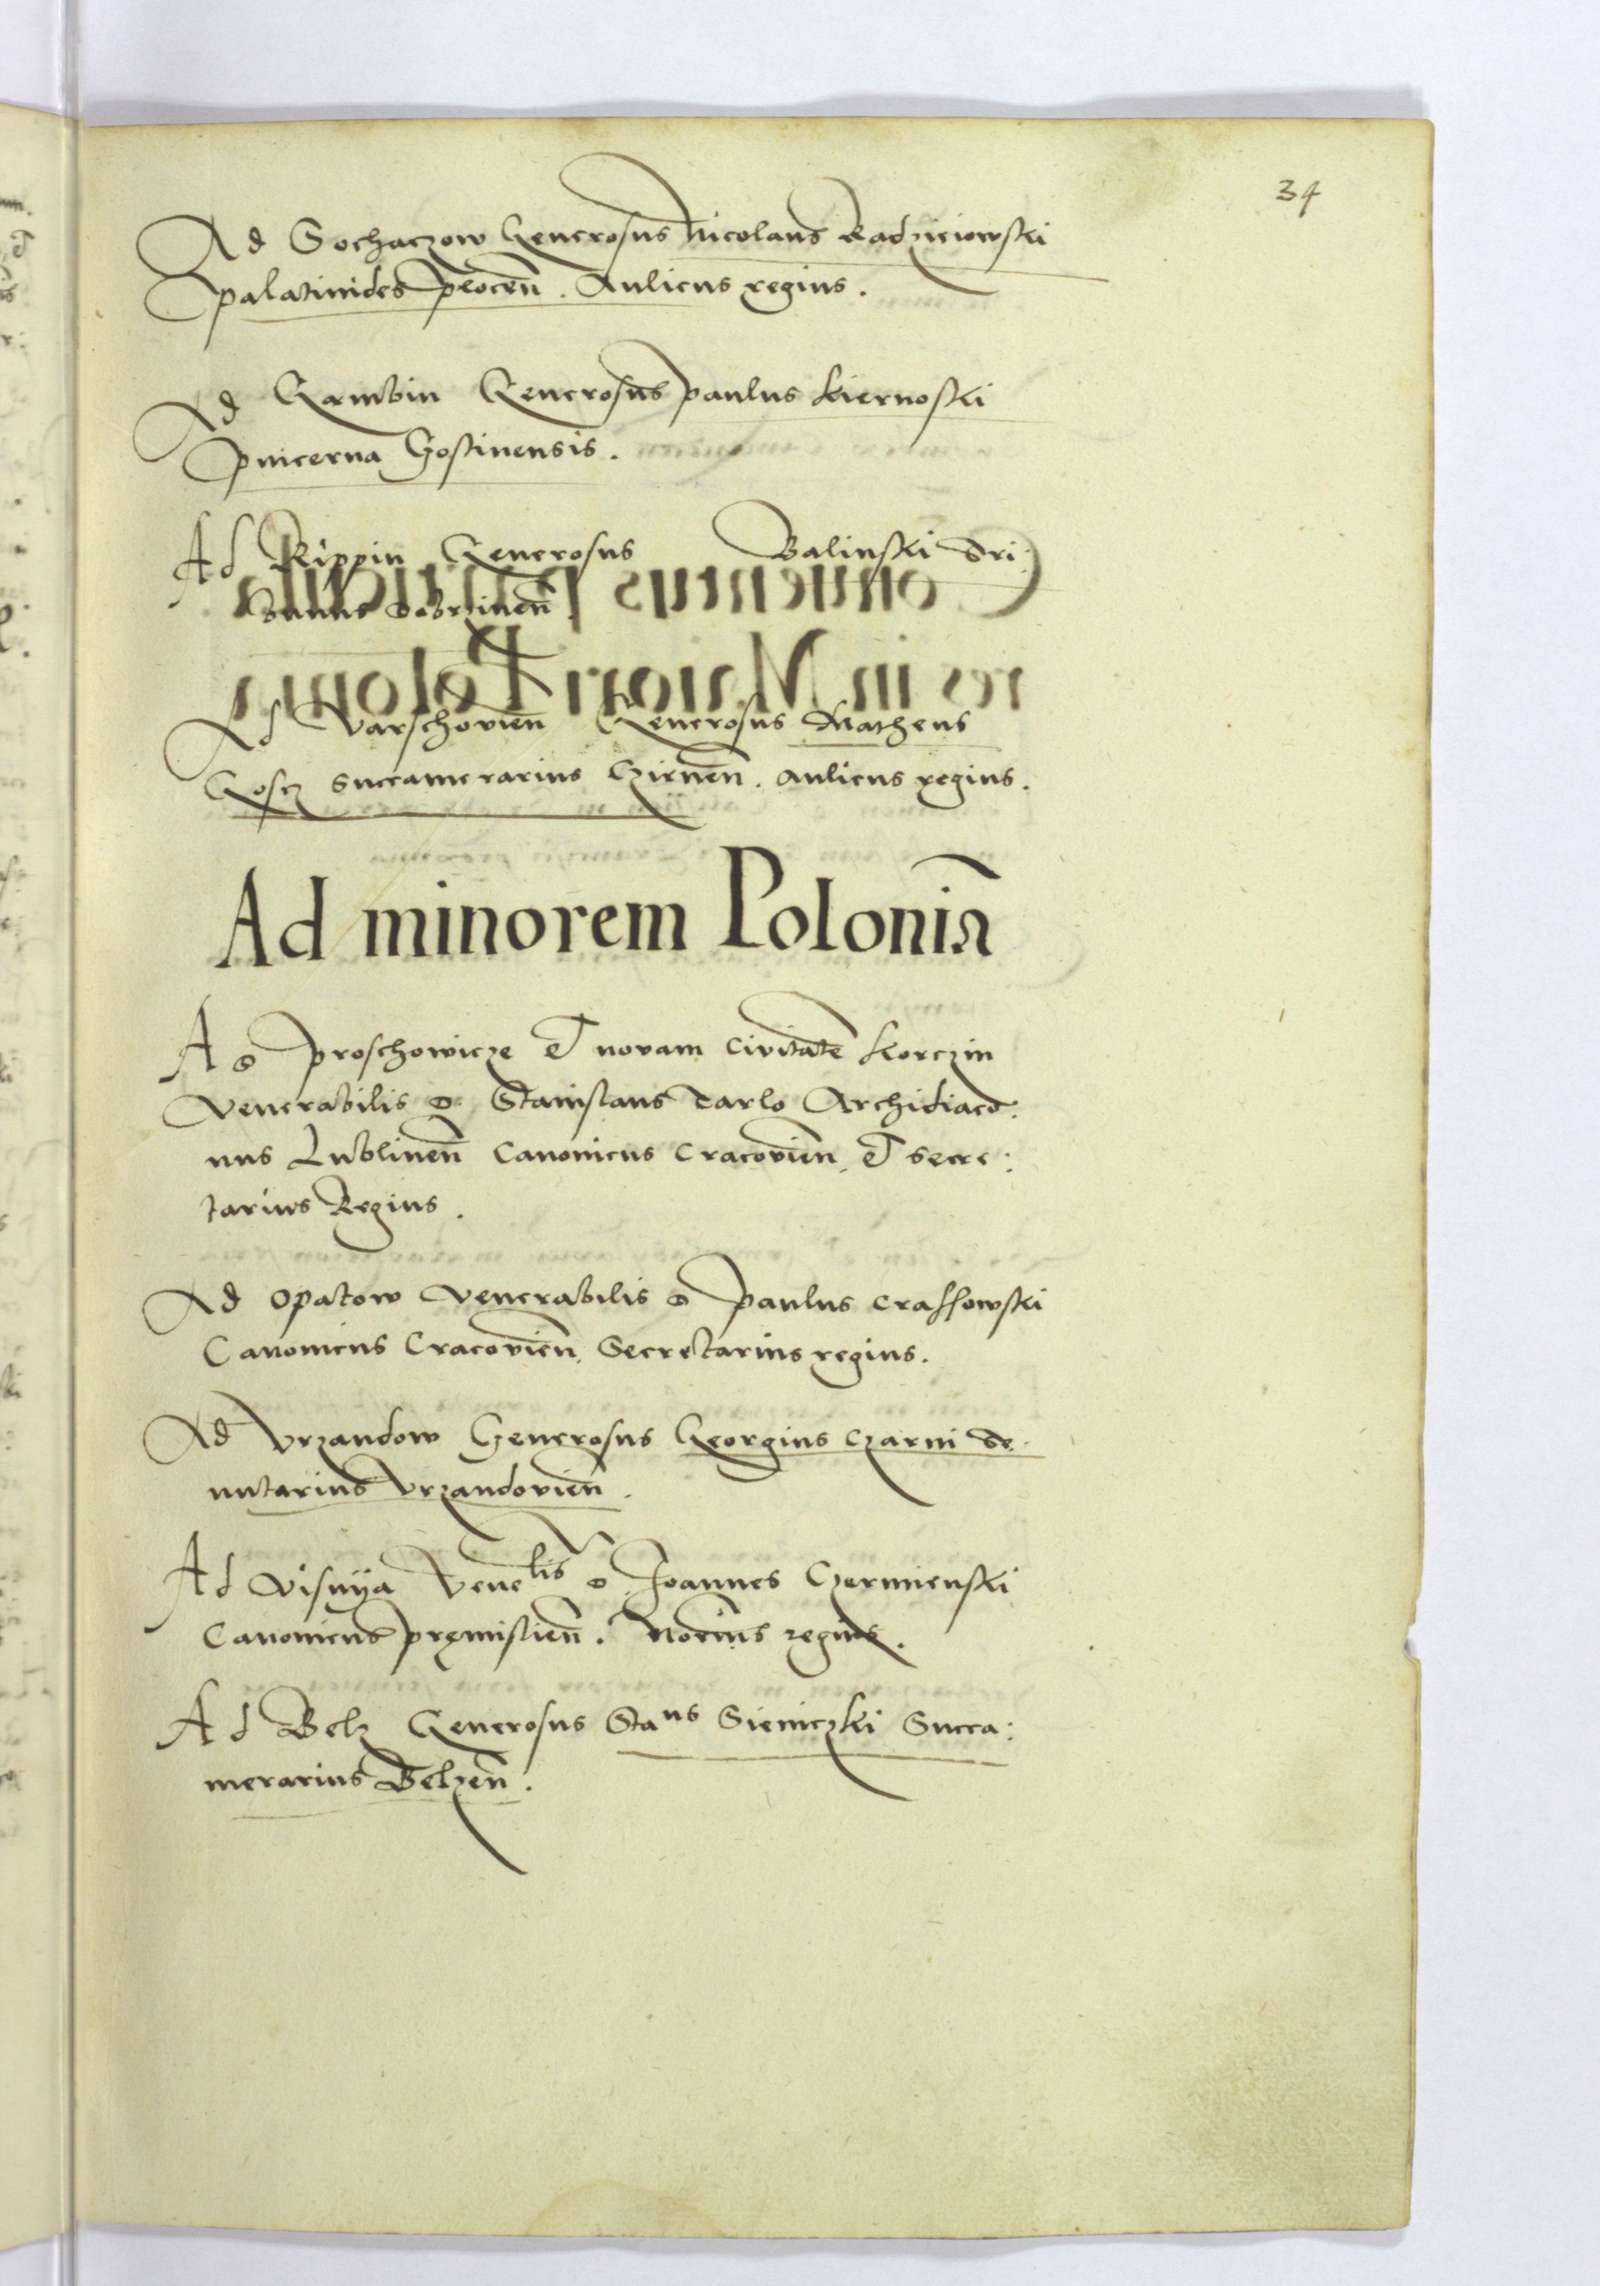 34
Ad Sochaczow Generosus Nicolaus Radzieiowski
palatinides plocen̄. Aulicus regius.
Ad Gambin Generosus paulus kiernoski
pincerna Gostinensis.
Ad Rippin Generosus Balinski Tri:
bunus dobrzinen̄.
Ad Varschovien̄ Generosus Matheus
Goscz succamerarius Czirnen̄. aulicus regius.
Ad minorem Poloniā
Ad proschowicze Et novam civitatē korczin
Venerabilis D. Stanislaus Tarlo Archidiaco:
nus Lublinen̄ Canonicus Cracovien̄. Et secre:
tarius Regius.
Ad opatow Venerabilis D paulus Crassowski
Canonicus Cracovien̄. Secretarius regius.
Ad Vrzandow Generosus Georgius Czarni
Vrzandovien̄.
Ad Visnya Venelis D. Joannes Czermienski
Canonicus premislien̄. Notrius regius.
Ad Belz Generosus Staus Sieniczki Succa:
merarius Belzen̄.